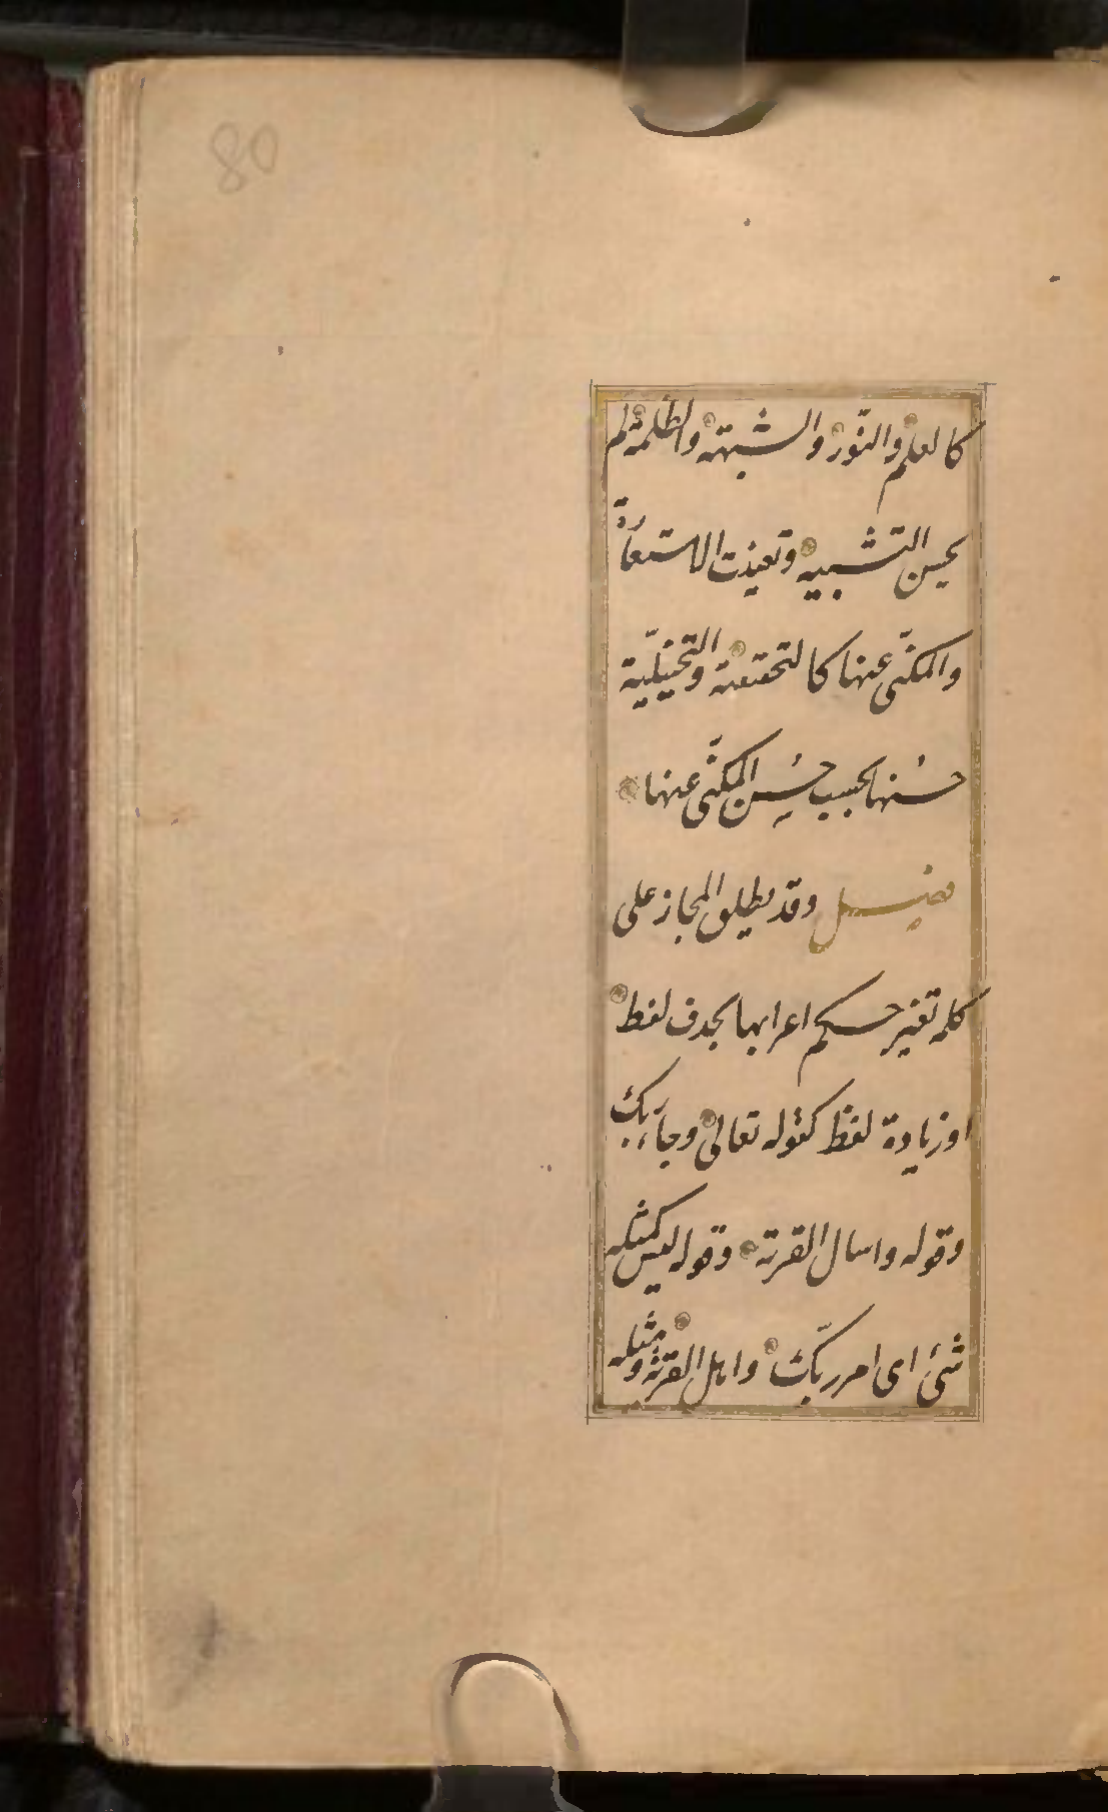 80
كالعلم والنّور والشبهة والظلمة لم
يحسن التشبيه وتعينت الاستعارة
والمكنّى عنها كالتحقيقية والتخييليّة
حُسنها بحسب حُسن المكنّى عنها
فصل وقد يطلق المجاز على
كلمة تغير حكم اعرابها بحذف لفظ
او زيادة لفظ كقوله تعالى وجاء ربك
وقوله واسال القرية وقوله ليس كمثله
شئ اى امر ربّك واهل القرية ومثله